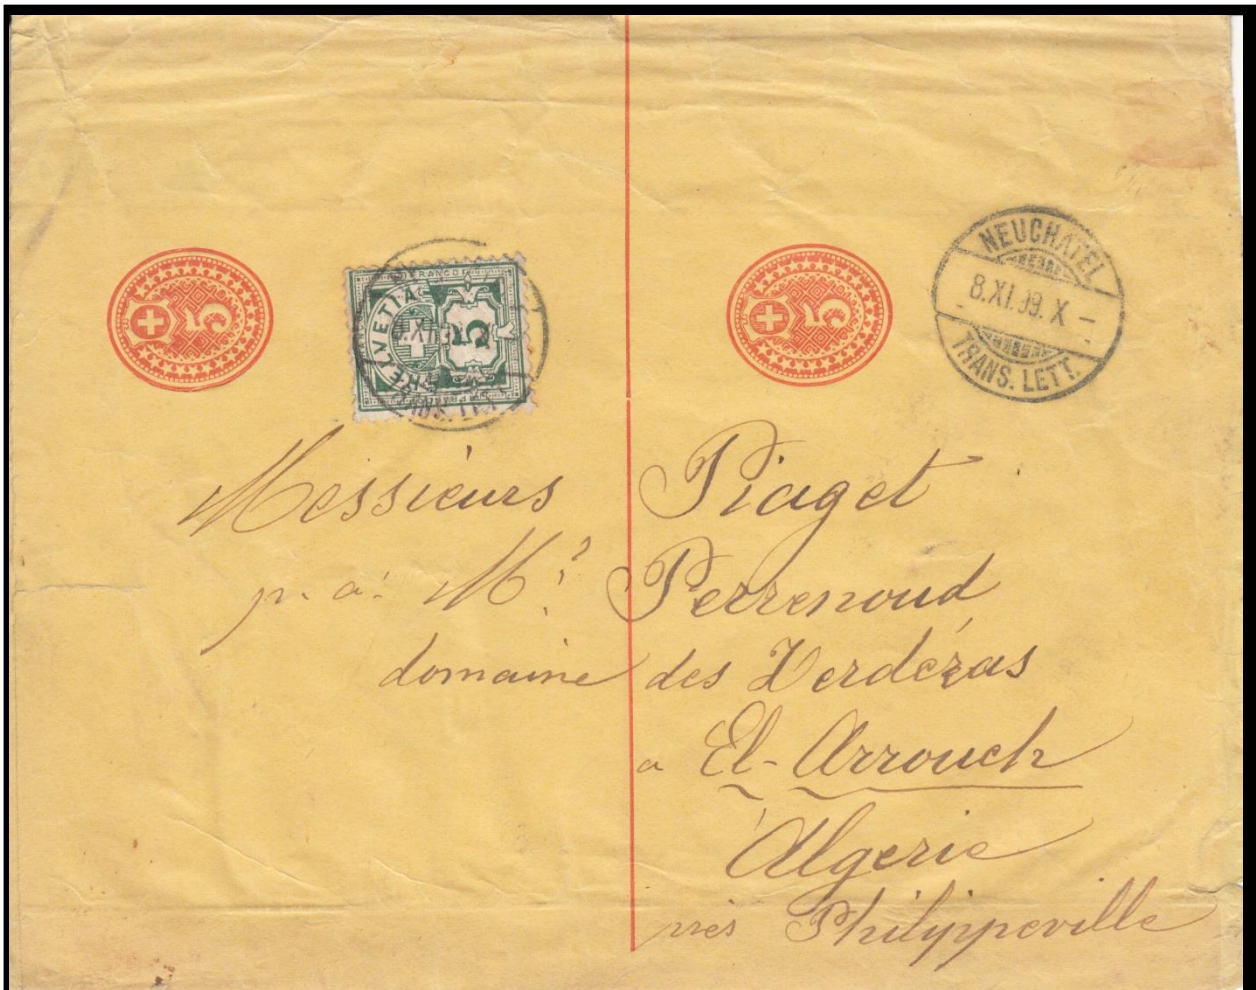 5
FRANCO
HELVETIA
5
FRANCO
5
NEUCHATEL
8.XI.99.X–
TRANS. LETT.
Messieurs Piaget
p. a. Mr. Perrenoud
domaine des Zerdézas
a El-Arrouch
Algerie
près Philippeville